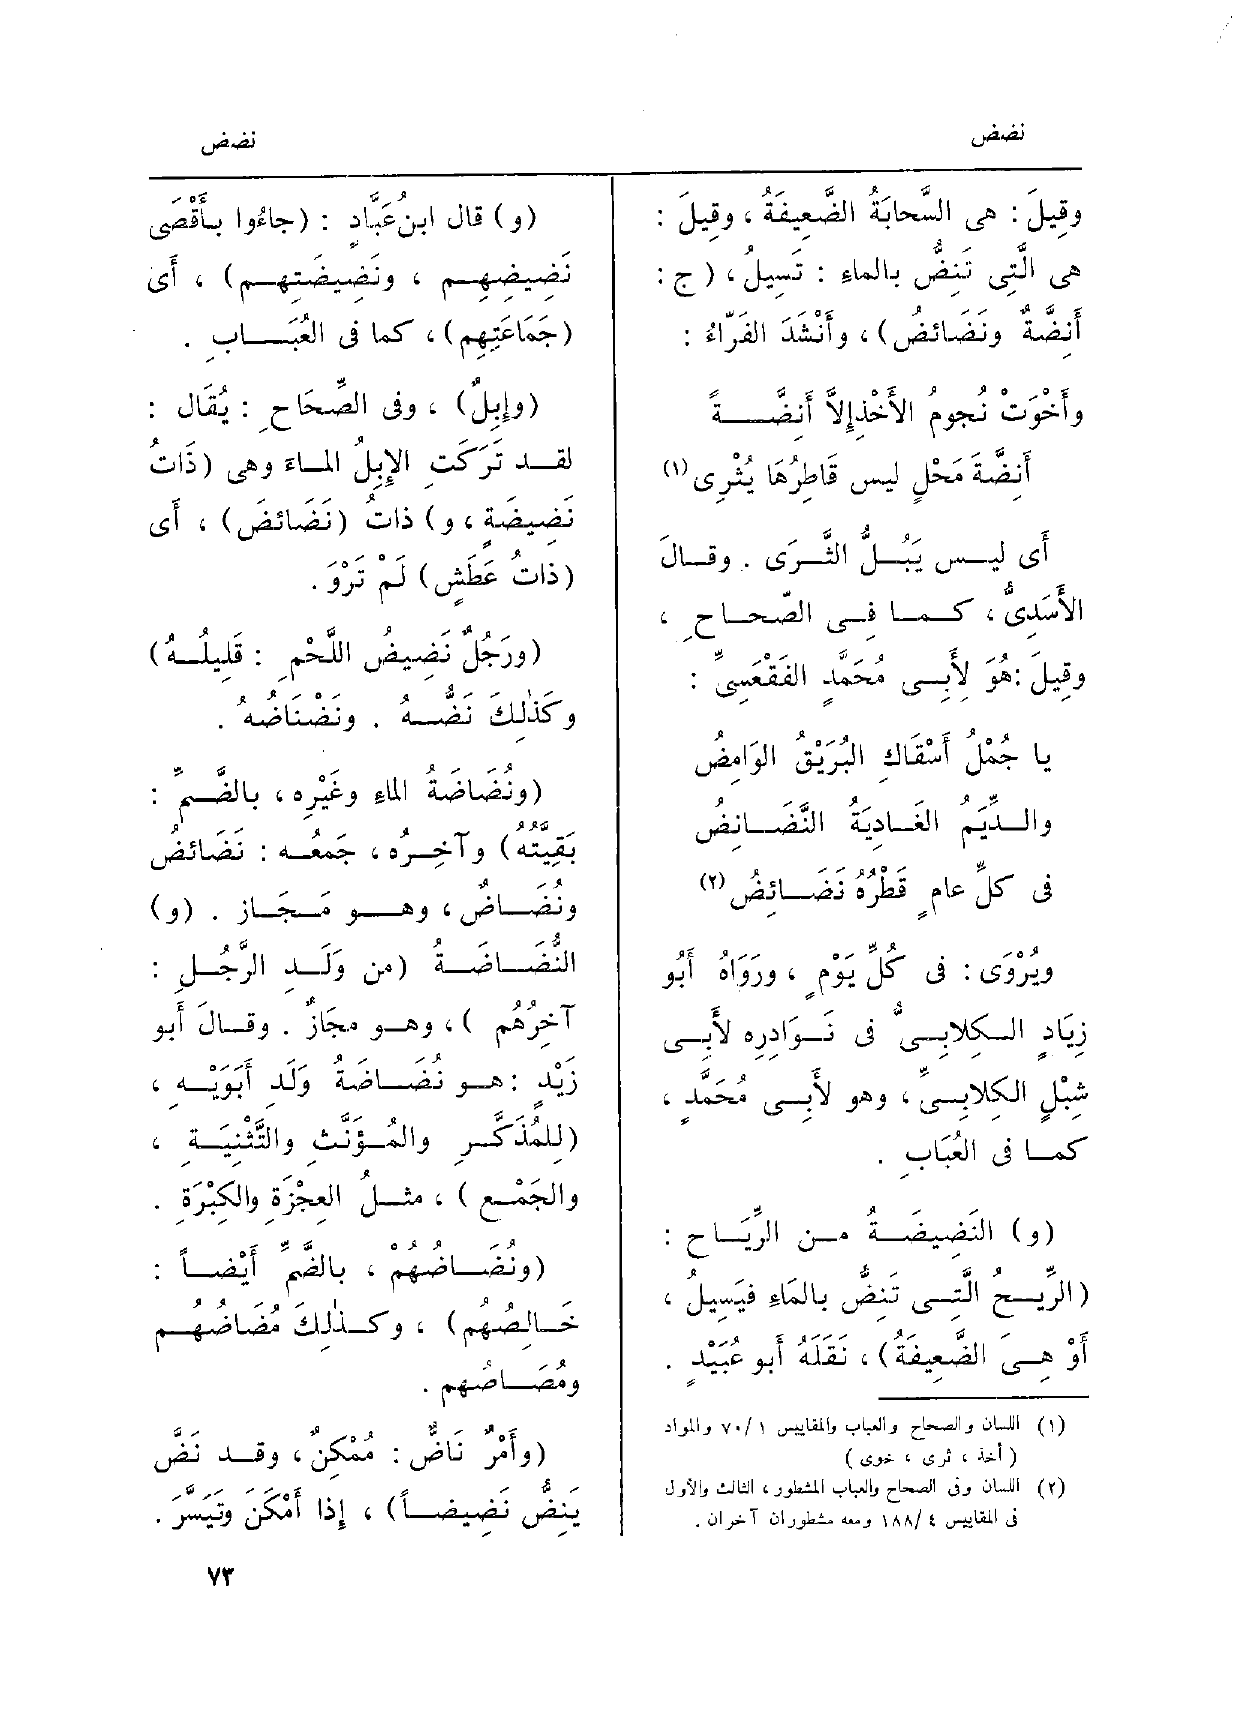 نضض
نضض
وقِيلَ : هى السَّحابَةُ الضَّعِيفَةُ ، وقِيلَ :
هى الَّتِى تَنِضُّ بالماءِ : تَسِيلُ ، ( ج :
أَنِضَّةٌ ونَضَائضُ ) ، وأَنْشَدَ الفَرّاءُ :
وأَخْوَتْ نُجومُ الأَخْذِ إِلاَّ أَنِضَّــــةً
أَنِضَّةَ مَحْلٍ ليس قَاطِرُهَا يُثْرِى (١)
أَى ليـس يَبُـلُّ الثَّـرَى . وقـالَ
الأَسَدِىُّ ، كـمـا فِـى الصّـحـاحِ ،
وقِيلَ : هُوَ لأَبِـى مُحَمَّدٍ الفَقْعَسِىِّ :
يا جُمْلُ أَسْقَاكِ البُرَيْقُ الوَامِضُ
والـدِّيَمُ الغَـادِيَةُ النَّضَـانِضُ
فى كلِّ عامٍ قَطْرُهُ نَضَـائِضُ (٢)
ويُرْوَى : فى كُلِّ يَوْمٍ ، ورَوَاهُ أَبُو
زِيَادٍ الـكِلابِـىُّ فى نَـوَادِرِه لأَبِـى
شِبْلٍ الكِلابِـىِّ ، وهو لأَبِـى مُحَمَّدٍ ،
كمـا فى العُبَابِ .
(و) النَّضِيضَـةُ مـن الرِّيَـاحِ :
(الرِّيـحُ الَّتِـى تَنِضُّ بالمَاءِ فيَسِيلُ ،
أَوْ هـىَ الضَّعِيفَةُ) ، نَقَلَهُ أَبو عُبَيْدٍ .
(١) اللسان والصحاح والعباب والمقاييس ٧٠/١ والمواد
( أخذ ، ثرى ، خوى )
(٢) اللسان وفى الصحاح والعباب المشطور ، الثالث والأول
فى المقاييس ١٨٨/٤ ومعه مشطوران آخران .
(و) قال ابنُ عَبَّادٍ : (جاءُوا بـأَقْصَى
نَضِيضِهِـم ، ونَضِيضَتِهـم) ، أَى
(جَمَاعَتِهِم) ، كما فى العُبَـــابِ .
(وإِبِلٌ) ، وفى الصِّحَاحِ : يُقَال :
لقـد تَرَكَتِ الإِبِلُ المـاءَ وهى (ذَاتُ
نَضِيضَةٍ ، و) ذاتُ (نَضَائضَ) ، أَى
(ذاتُ عَطَشٍ) لَمْ تَرْوَ .
(ورَجُلٌ نَضِيضُ اللَّحْمِ : قَلِيلُـهُ)
وكَذٰلِكَ نَضُّـهُ . ونَضْنَاضُهُ .
(ونُضَاضَةُ الماءِ وغَيْرِه ، بالضَّـمِّ :
بَقِيَّتُهُ) وآخِـرُه ، جَمْعُـه : نَضَائضُ
ونُضَـاضٌ ، وهـو مَـجَـاز . (و)
النُّضَـاضَـةُ (من وَلَـدِ الرَّجُـلِ :
آخِرُهُم ) ، وهـو مجَازٌ . وقـالَ أَبو
زَيْدٍ : هـو نُضَـاضَةُ وَلَدِ أَبَوَيْـهِ ،
(لِلمُذَكَّـرِ والمُؤَنَّثِ والتَّثْنِيَـةِ ،
والجَمْـعِ ) ، مثـلُ العِجْزَةِ والكِبْرَةِ .
(ونُضَـاضُهُمْ ، بالضَّمِّ أَيْضـاً :
خَـالِصُهُم) ، وكـذٰلِكَ مُضَاضُهُـم
ومُصَـاصُهم .
(وأَمْرٌ نَاضٌّ : مُمْكِنٌ ، وقـد نَضَّ
يَنِضُّ نَضِيضـاً) ، إِذا أَمْكَنَ وتَيَسَّرَ .
٧٣